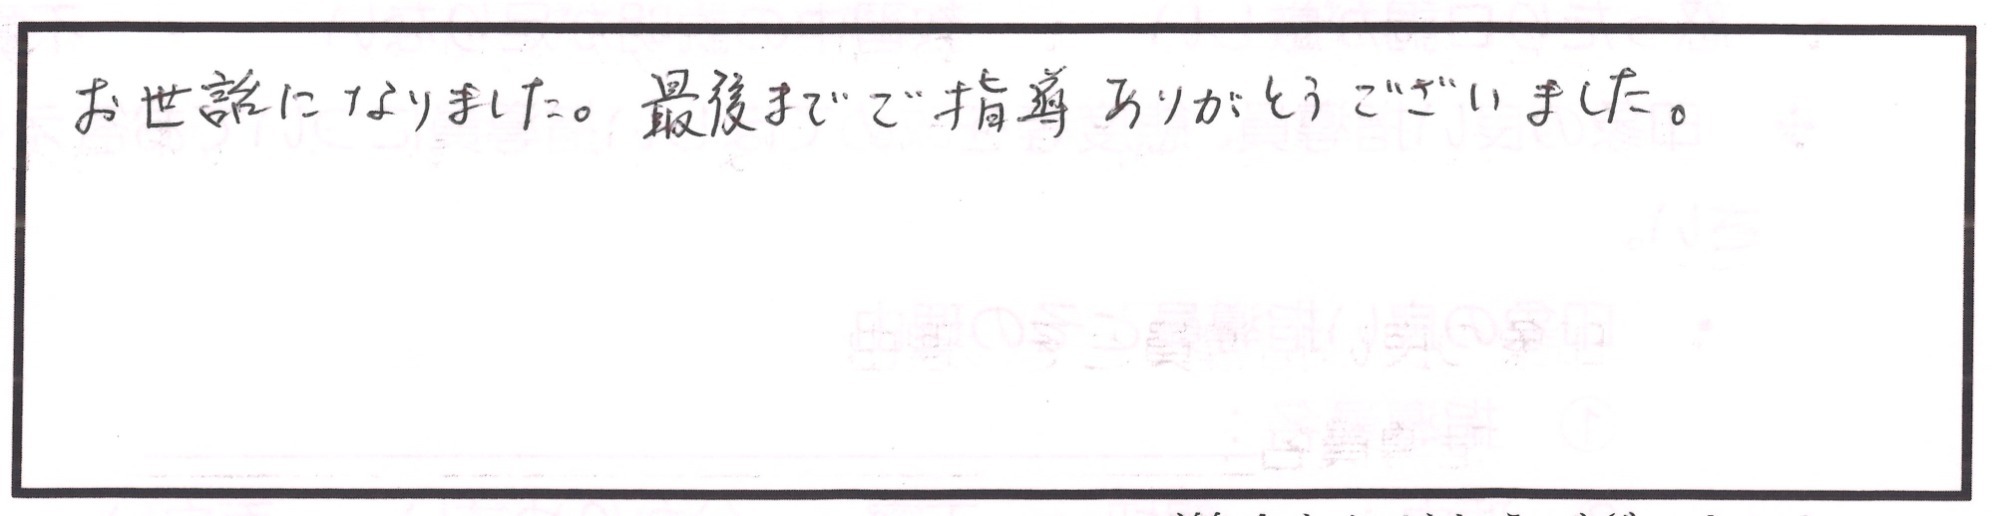 お世話になりました。最後までご指導ありがとうございました。